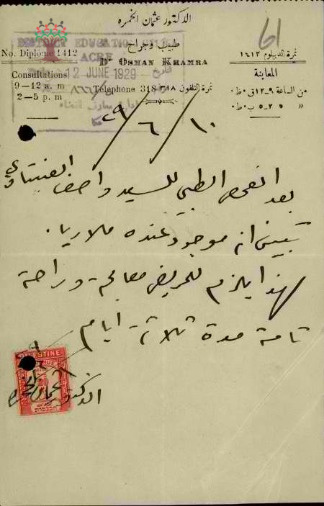 الدكتور عثمان الخمره
طبيب وجراح
Dr OSMAN KHAMRA
No. Diplome 1412
نمرة الديبلوم ١٤١٢
DISTRICT EDUCATION
ACRE
12 JUNE 1929
تاريخ
Consultations
9 — 12 a. m
2 — 5 p. m
المعاينة
من الساعة ٩ـ١٢ ق٠ظ
« ٢ـ٥ ب٠ظ
Telephone 318 ٣١٨ نمرة التلفون
١٠/٦/٢٩
بعد الفحص الطبي للسيد واصف
تبين انه موجود عنده ملاريا.
لهذا يلزم للمريض معالجة وراحة
تامة مدة ثلاثة ايام
الدكتور عثمان الخمره